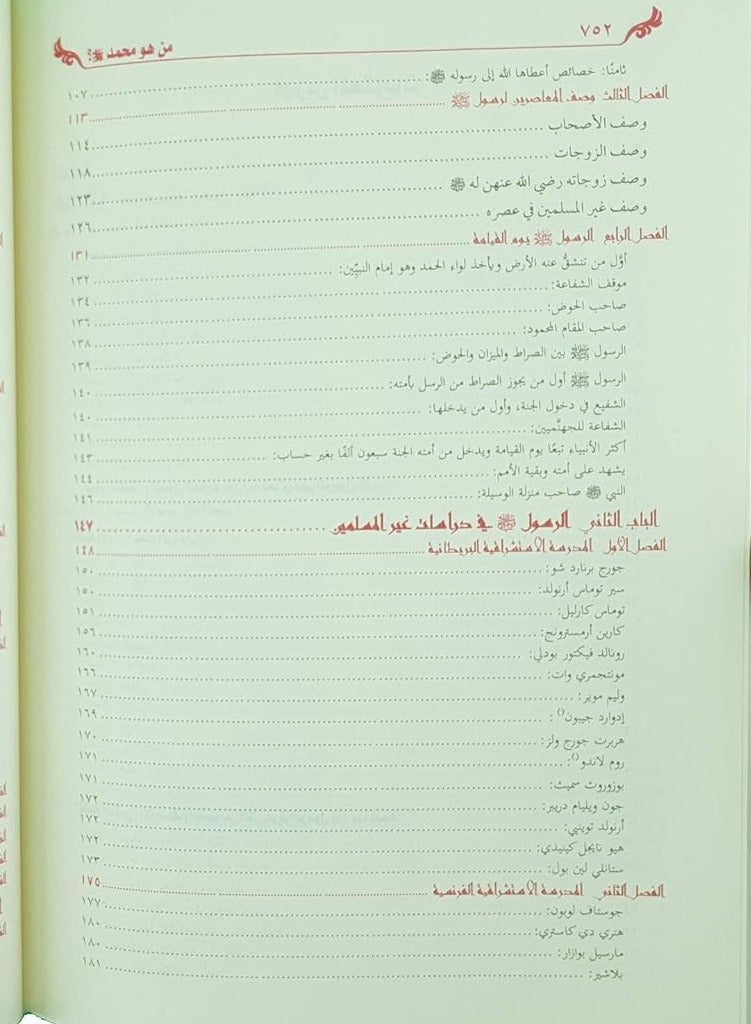 ٧٥٢
من هو محمد ﷺ؟
ثامنًا: خصائص أعطاها الله إلى رسوله ﷺ: ١٠٧
الفصل الثالث وصف المعاصرين لرسول ﷺ ١١٣
وصف الأصحاب ١١٤
وصف الزوجات ١١٨
وصف زوجاته رضي الله عنهن له ﷺ ١٢٣
وصف غير المسلمين في عصره ١٢٦
الفصل الرابع الرسول ﷺ يوم القيامة ١٣١
أوَّل من تنشقُّ عنه الأرض ويأخذ لواء الحمد وهو إمام النبيِّين: ١٣٢
موقف الشفاعة: ١٣٤
صاحب الحوض: ١٣٦
صاحب المقام المحمود: ١٣٨
الرسول ﷺ بين الصراط والميزان والحوض: ١٣٩
الرسول ﷺ أول من يجوز الصراط من الرسل بأمته: ١٤٠
الشفيع في دخول الجنة، وأول من يدخلها: ١٤٠
الشفاعة للجهنَّميين: ١٤١
أكثر الأنبياء تبعًا يوم القيامة ويدخل من أمته الجنة سبعون ألفًا بغير حساب: ١٤٣
يشهد على أمته وبقية الأمم: ١٤٤
النبي ﷺ صاحب منزلة الوسيلة: ١٤٦
الباب الثاني الرسول ﷺ في دراسات غير المسلمين ١٤٧
الفصل الأول المدرسة الاستشراقية البريطانية ١٤٨
جورج برنارد شو: ١٥٠
سير توماس أرنولد: ١٥٠
توماس كارليل: ١٥١
كارين أرمسترونج: ١٥٦
رونالد فيكتور بودلي: ١٦٠
مونتجمري وات: ١٦٦
وليم موير: ١٦٧
إدوارد جيبون: ١٦٩
هربرت جورج ولز: ١٧٠
روم لاندو: ١٧١
بوزوروث سميث: ١٧١
جون ويليام دريبر: ١٧٢
أرنولد توينبي: ١٧٢
هيو نايجل كينيدي: ١٧٢
ستانلي لين بول: ١٧٣
الفصل الثاني المدرسة الاستشراقية الفرنسية ١٧٥
جوستاف لوبون: ١٧٧
هنري دي كاستري: ١٨٠
مارسيل بوازار: ١٨٠
بلاشير: ١٨١